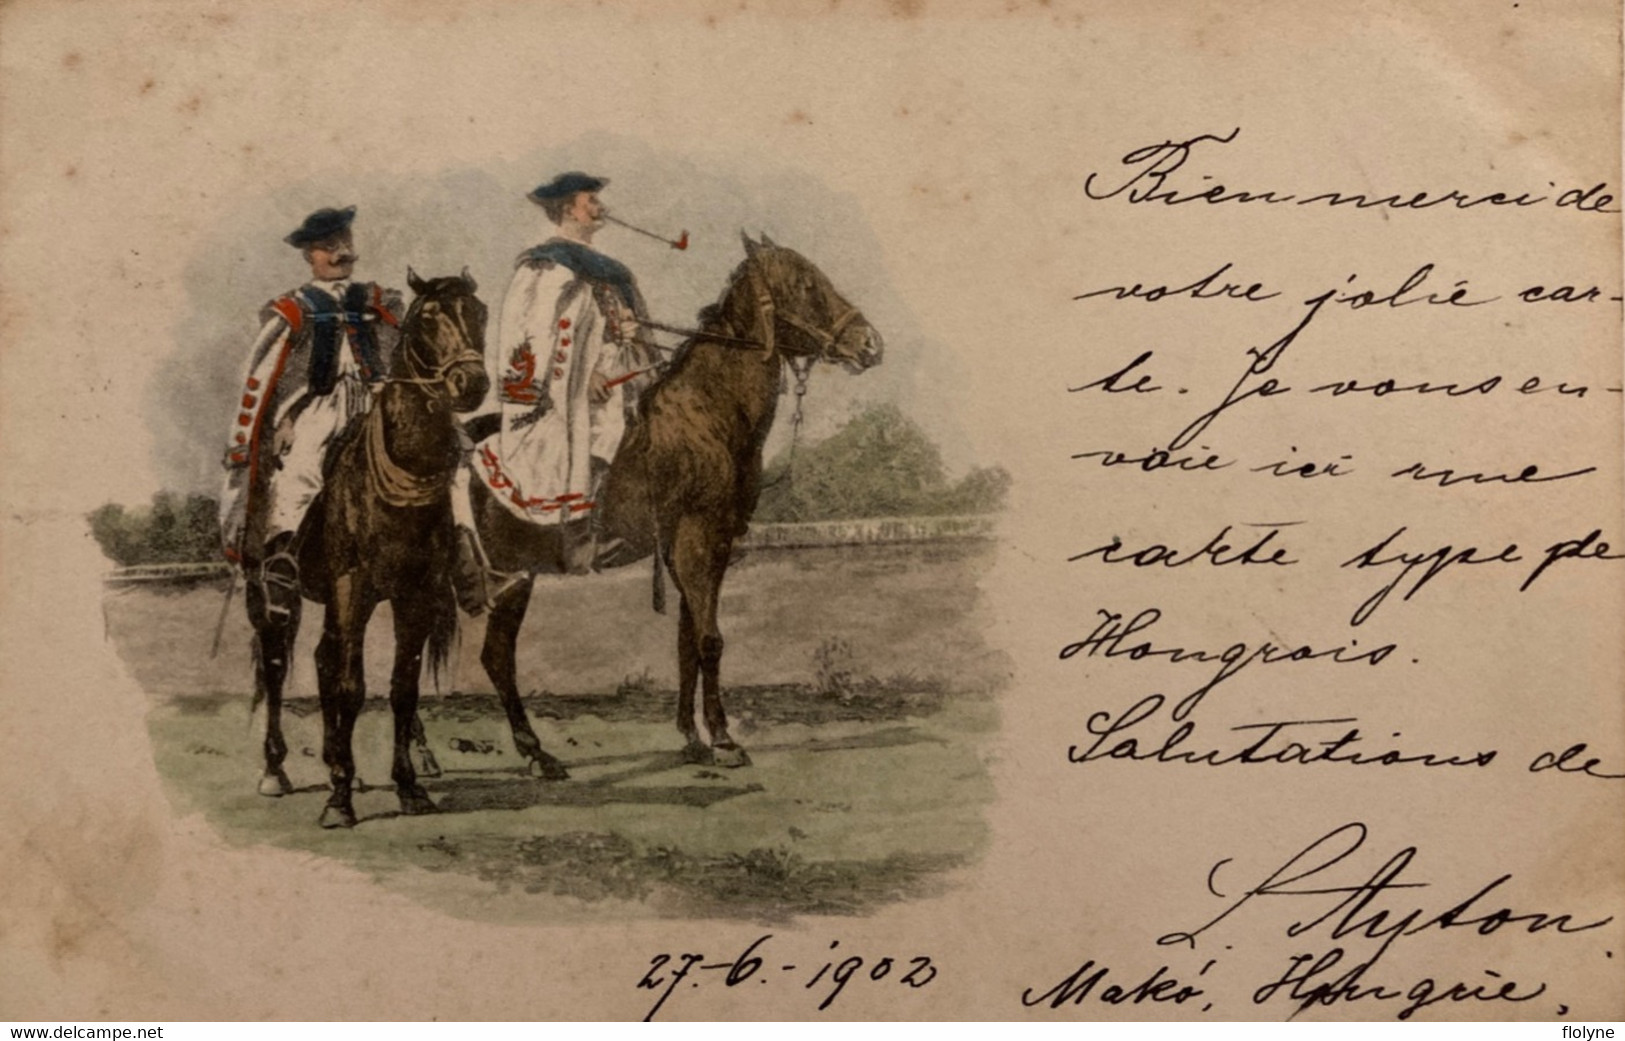 Bien merci de
votre jolie car-
te. Je vous en-
voie ici une
carte type de
Hongrois.
Salutations de
L. Ayton.
Makó, Hongrie,
27.-6.-1902
delcampe.net
flolyne